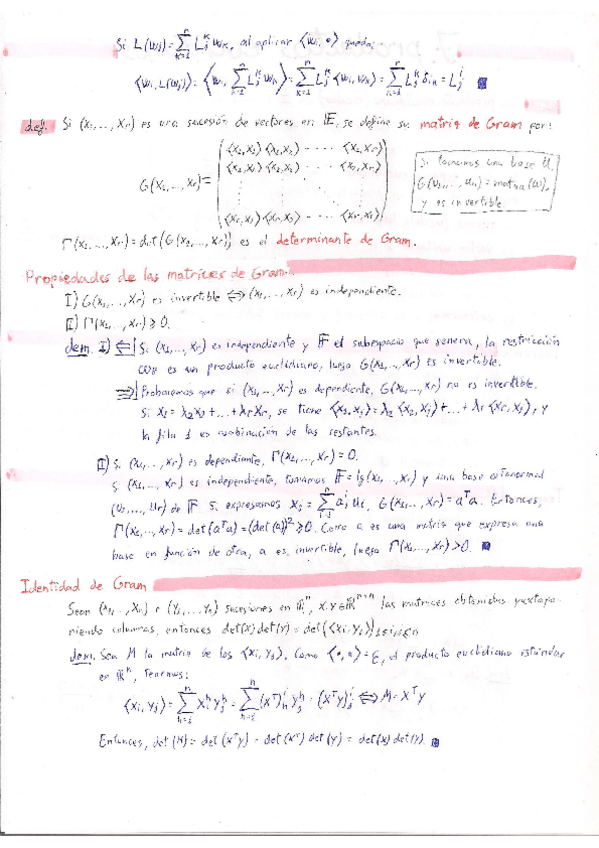 Si L(wⱼ) = Σₖ₌₁ⁿ Lⱼᵏ wₖ, al aplicar ⟨wᵢ, •⟩ queda:
⟨wᵢ, L(wⱼ)⟩ = ⟨wᵢ, Σₖ₌₁ⁿ Lⱼᵏ wₖ⟩ = Σₖ₌₁ⁿ Lⱼᵏ ⟨wᵢ, wₖ⟩ = Σₖ₌₁ⁿ Lⱼᵏ δᵢₖ = Lⱼⁱ
def. Si (x₁, ..., xᵣ) es una sucesión de vectores en E, se define su matriz de Gram por:
G(x₁, ..., xᵣ) = (⟨x₁,x₁⟩ ⟨x₁,x₂⟩ ..... ⟨x₁,xᵣ⟩
⟨x₂,x₁⟩ ⟨x₂,x₂⟩ ..... ⟨x₂,xᵣ⟩
⟨xᵣ,x₁⟩ ⟨xᵣ,x₂⟩ ..... ⟨xᵣ,xᵣ⟩)
Si tomamos una base U,
G(u₁, ..., uₙ) = matᵤ(ω),
y es invertible.
Γ(x₁, ..., xᵣ) = det(G(x₁, ..., xᵣ)) es el determinante de Gram.
Propiedades de las matrices de Gram
I) G(x₁, ..., xᵣ) es invertible ⟺ (x₁, ..., xᵣ) es independiente.
II) Γ(x₁, ..., xᵣ) ≥ 0.
dem. I) ⇐| Si (x₁, ..., xᵣ) es independiente y F el subespacio que genera, la restricción
ω_F es un producto euclidiano, luego G(x₁, ..., xᵣ) es invertible.
⇒| Probaremos que si (x₁, ..., xᵣ) es dependiente, G(x₁, ..., xᵣ) no es invertible.
Si x₁ = λ₂x₂ + ... + λᵣxᵣ, se tiene ⟨x₁, xⱼ⟩ = λ₂⟨x₂, xⱼ⟩ + ... + λᵣ⟨xᵣ, xⱼ⟩, y
la fila 1 es combinación de las restantes.
II) Si (x₁, ..., xᵣ) es dependiente, Γ(x₁, ..., xᵣ) = 0.
Si (x₁, ..., xᵣ) es independiente, tomamos F = lg(x₁, ..., xᵣ) y una base ortonormal
(u₁, ..., uᵣ) de F. Si expresamos xⱼ = Σᵢ₌₁ⁿ aⱼⁱ uᵢ, G(x₁, ..., xᵣ) = aᵀa. Entonces,
Γ(x₁, ..., xᵣ) = det(aᵀa) = (det(a))² ≥ 0. Como a es una matriz que expresa una
base en función de otra, a es invertible, luego Γ(x₁, ..., xᵣ) > 0.
Identidad de Gram
Sean (x₁, ..., xₙ) e (y₁, ..., yₙ) sucesiones en ℝⁿ, X, Y ∈ ℝⁿˣⁿ las matrices obtenidas yuxtapo-
niendo columnas, entonces det(X) det(Y) = det(⟨xᵢ, yⱼ⟩)₁≤i,j≤n
dem. Sea M la matriz de los ⟨xᵢ, yⱼ⟩. Como ⟨•,•⟩ = E, el producto euclidiano estándar
en ℝⁿ, tenemos:
⟨xᵢ, yⱼ⟩ = Σₕ₌₁ⁿ xᵢʰ yⱼʰ = Σₕ₌₁ⁿ (xᵀ)ₕⁱ yⱼʰ = (xᵀy)ⱼⁱ ⟺ M = xᵀy
Entonces, det(M) = det(xᵀy) = det(xᵀ) det(y) = det(x) det(y).